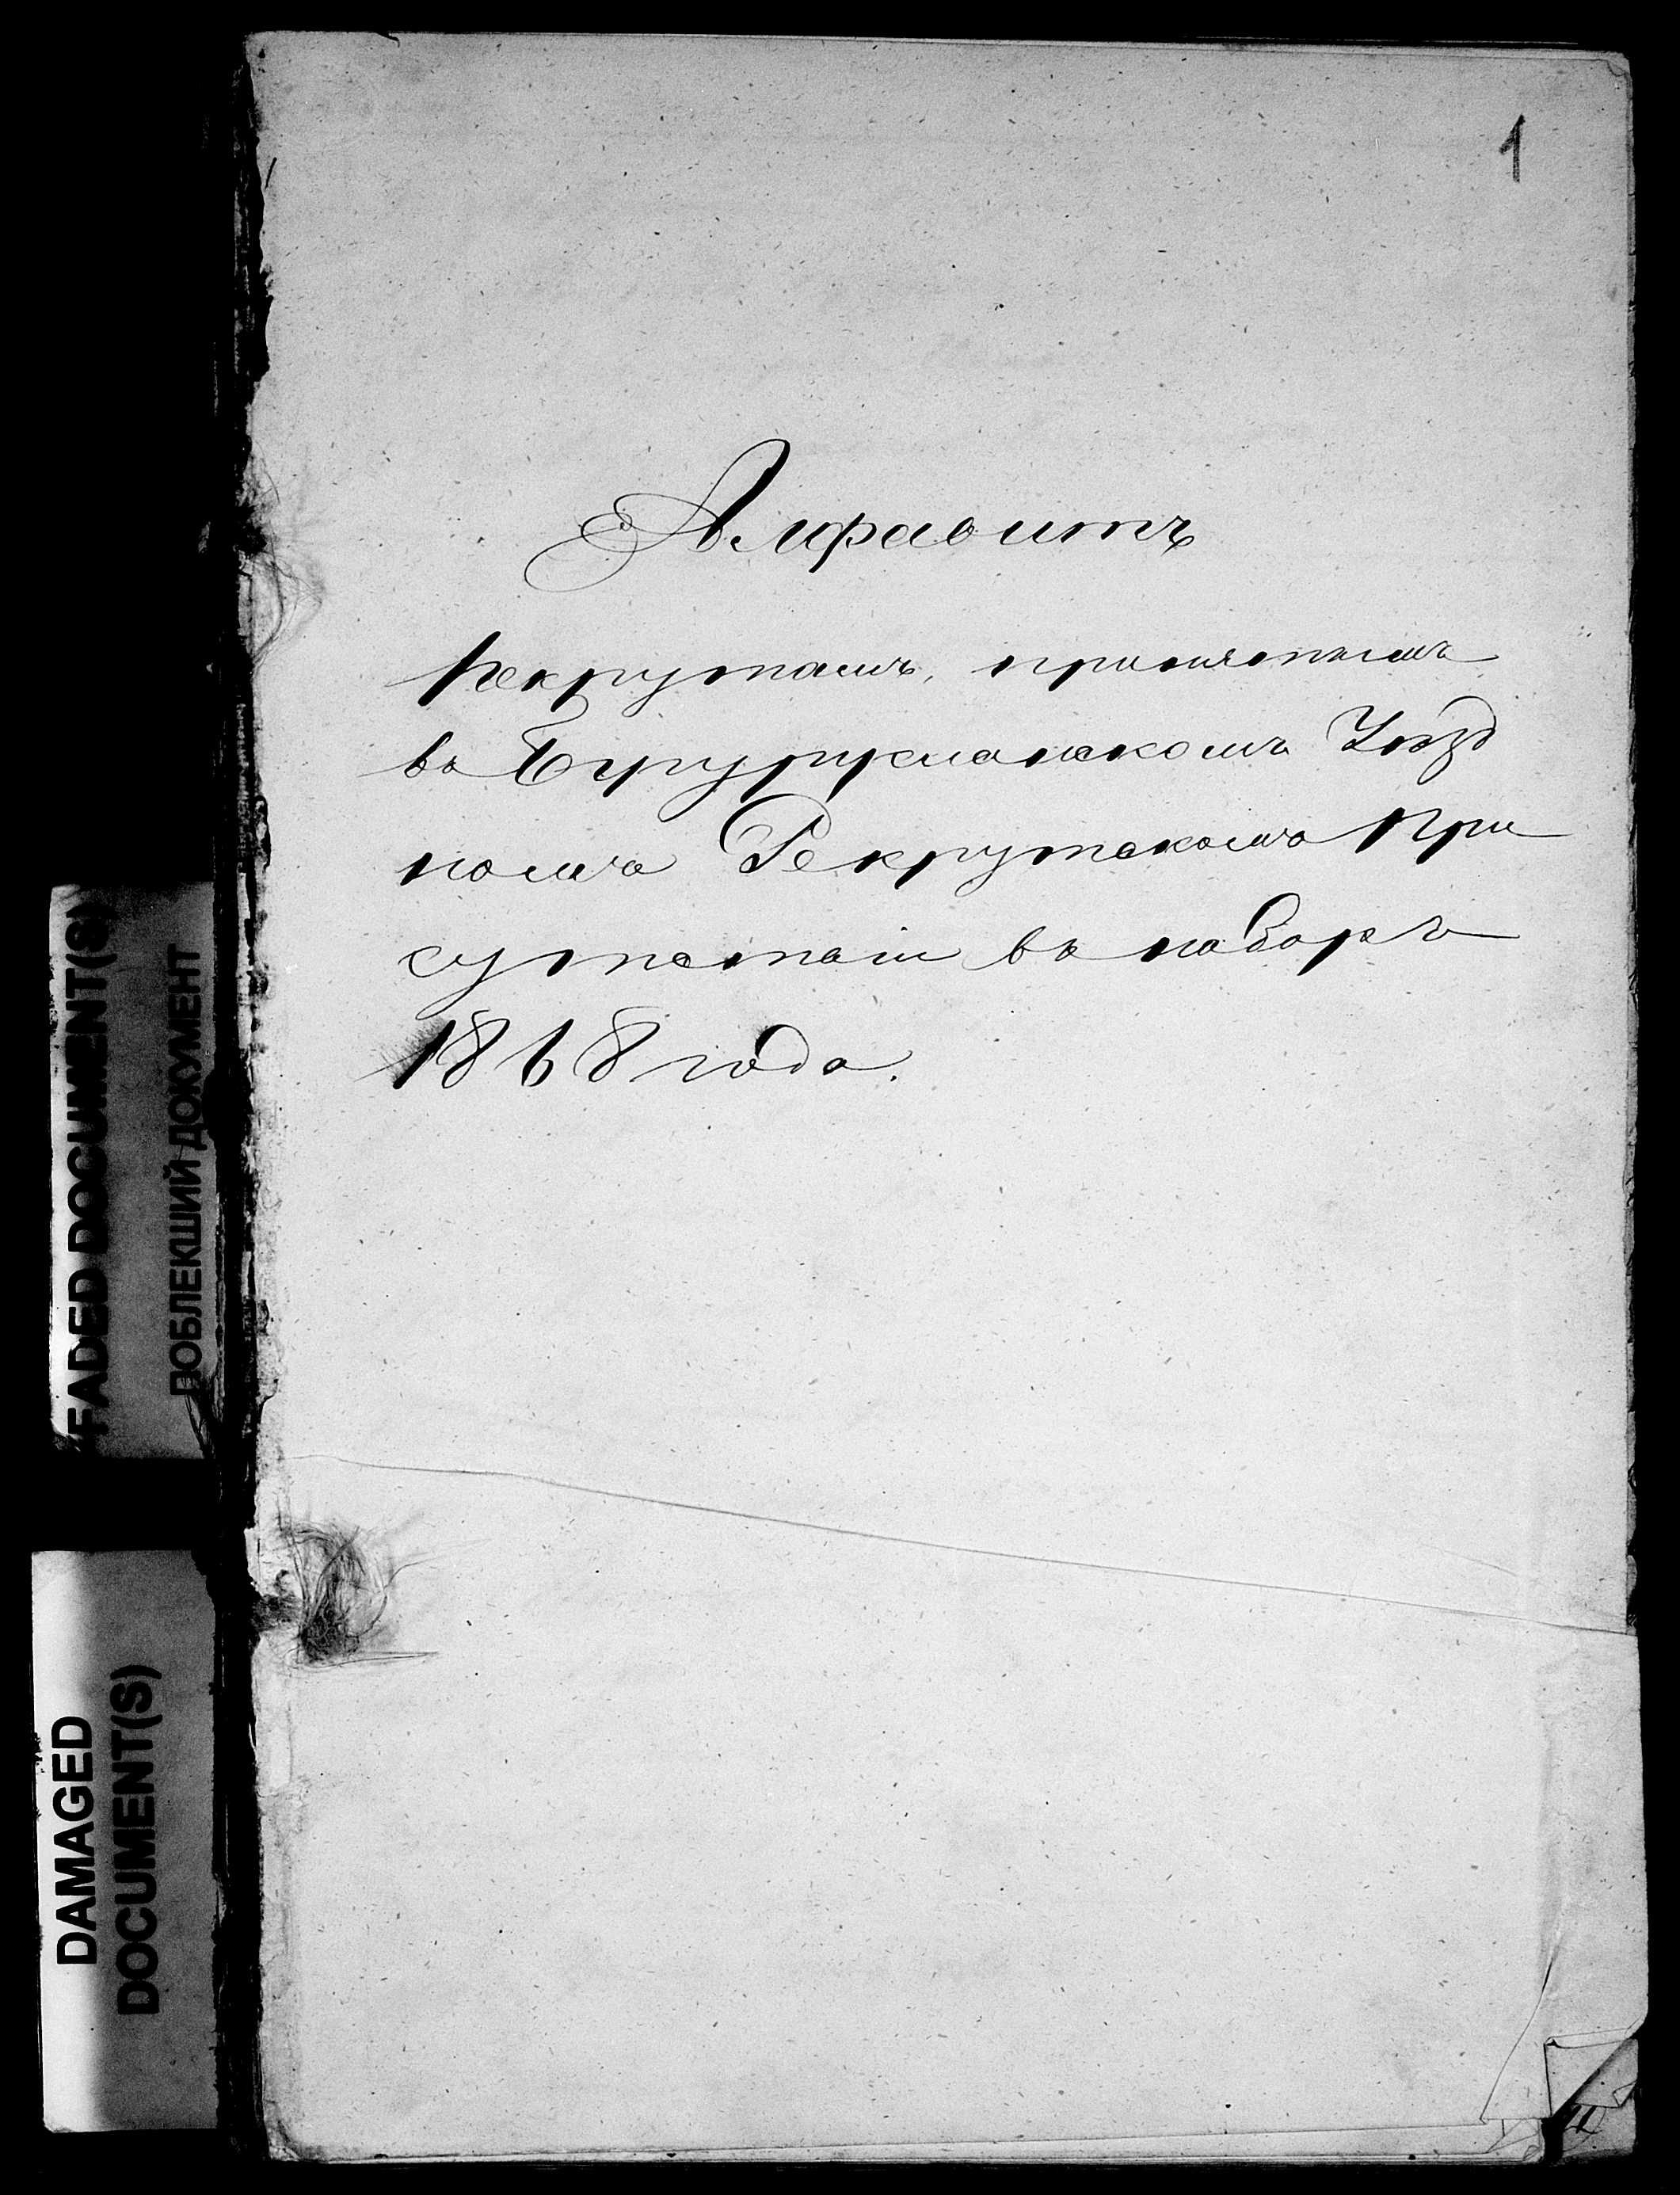 1
Алфавитъ
рекрутамъ, принятымъ
въ Бугурусланскомъ Уѣзд
номъ Рекрутскомъ При
сутствіи въ наборъ
1868 года.
FADED DOCUMENT(S)
ПОБЛЕКШИЙ ДОКУМЕНТ
DAMAGED
DOCUMENT(S)